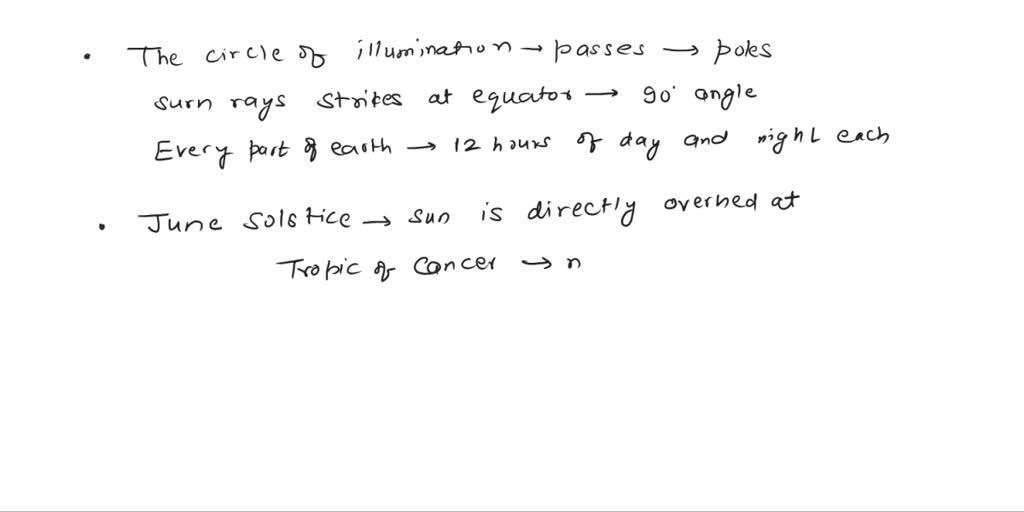 • The circle of illumination → passes → poles
surn rays strikes at equator → 90° angle
Every part of earth → 12 hours of day and night each
• June Solstice → sun is directly overhed at
Tropic of Cancer → n